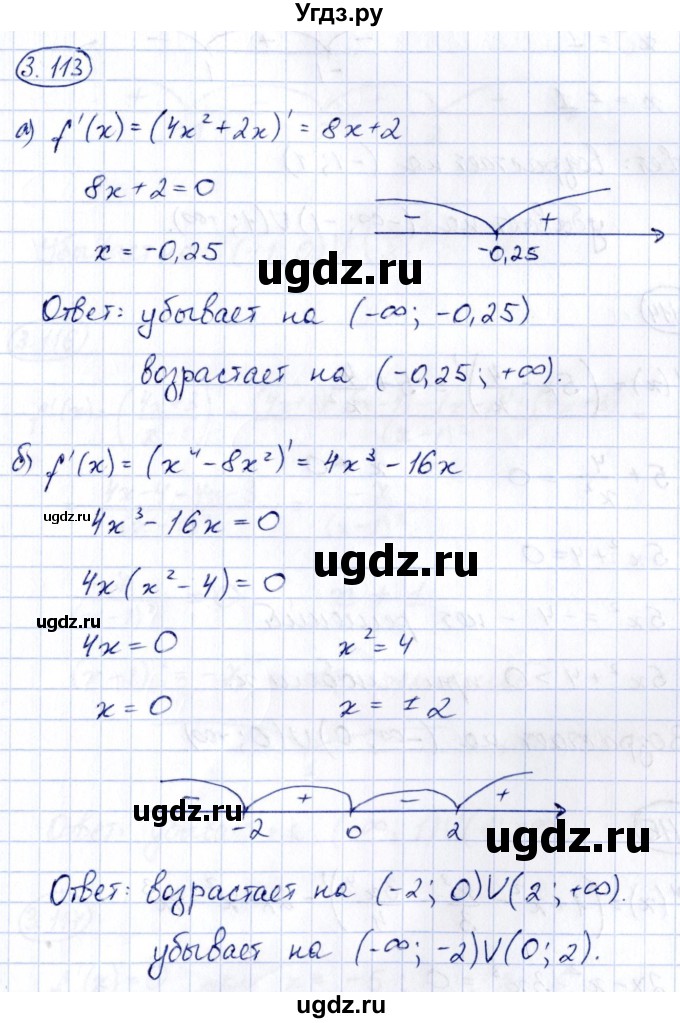 Угдз.ру
3.113
а) f'(x) = (4x² + 2x)' = 8x + 2
8x + 2 = 0
x = -0,25
- +
-0,25
ugdz.ru
Ответ: убывает на (-∞; -0,25)
возрастает на (-0,25; +∞).
б) f'(x) = (x⁴ - 8x²)' = 4x³ - 16x
ugdz.ru
4x³ - 16x = 0
ugdz.ru
4x(x² - 4) = 0
ugdz.ru
4x = 0 x² = 4
x = 0 x = ±2
- + - +
ugdz.ru
-2 0 2
ugdz.ru
Ответ: возрастает на (-2; 0)V(2; +∞).
убывает на (-∞; -2)V(0; 2).
ugdz.ru
ugdz.ru